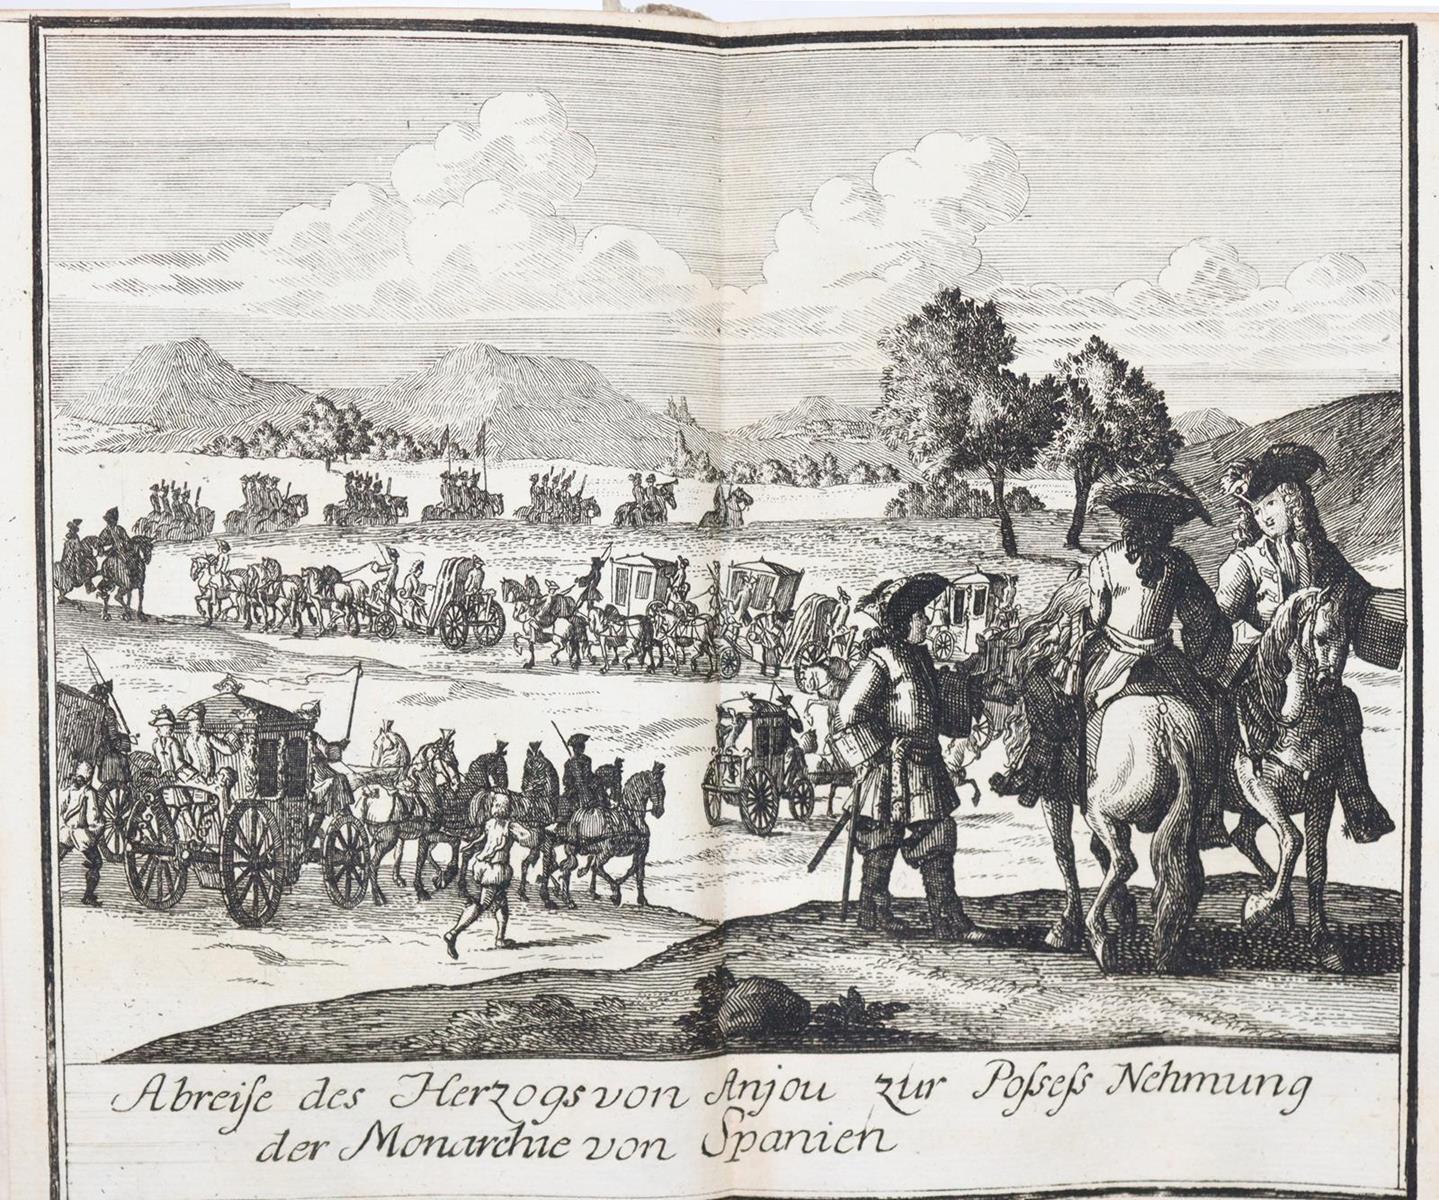 Abreiſe des Herzogs von Anjou zur Poſseſs Nehmung
der Monarchie von Spanien